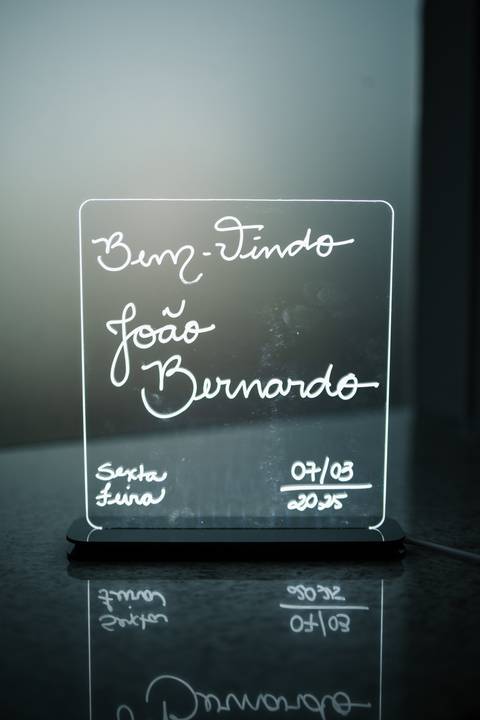 Bem-Vindo
João
Bernardo
Sexta 07/03
Feira 2025